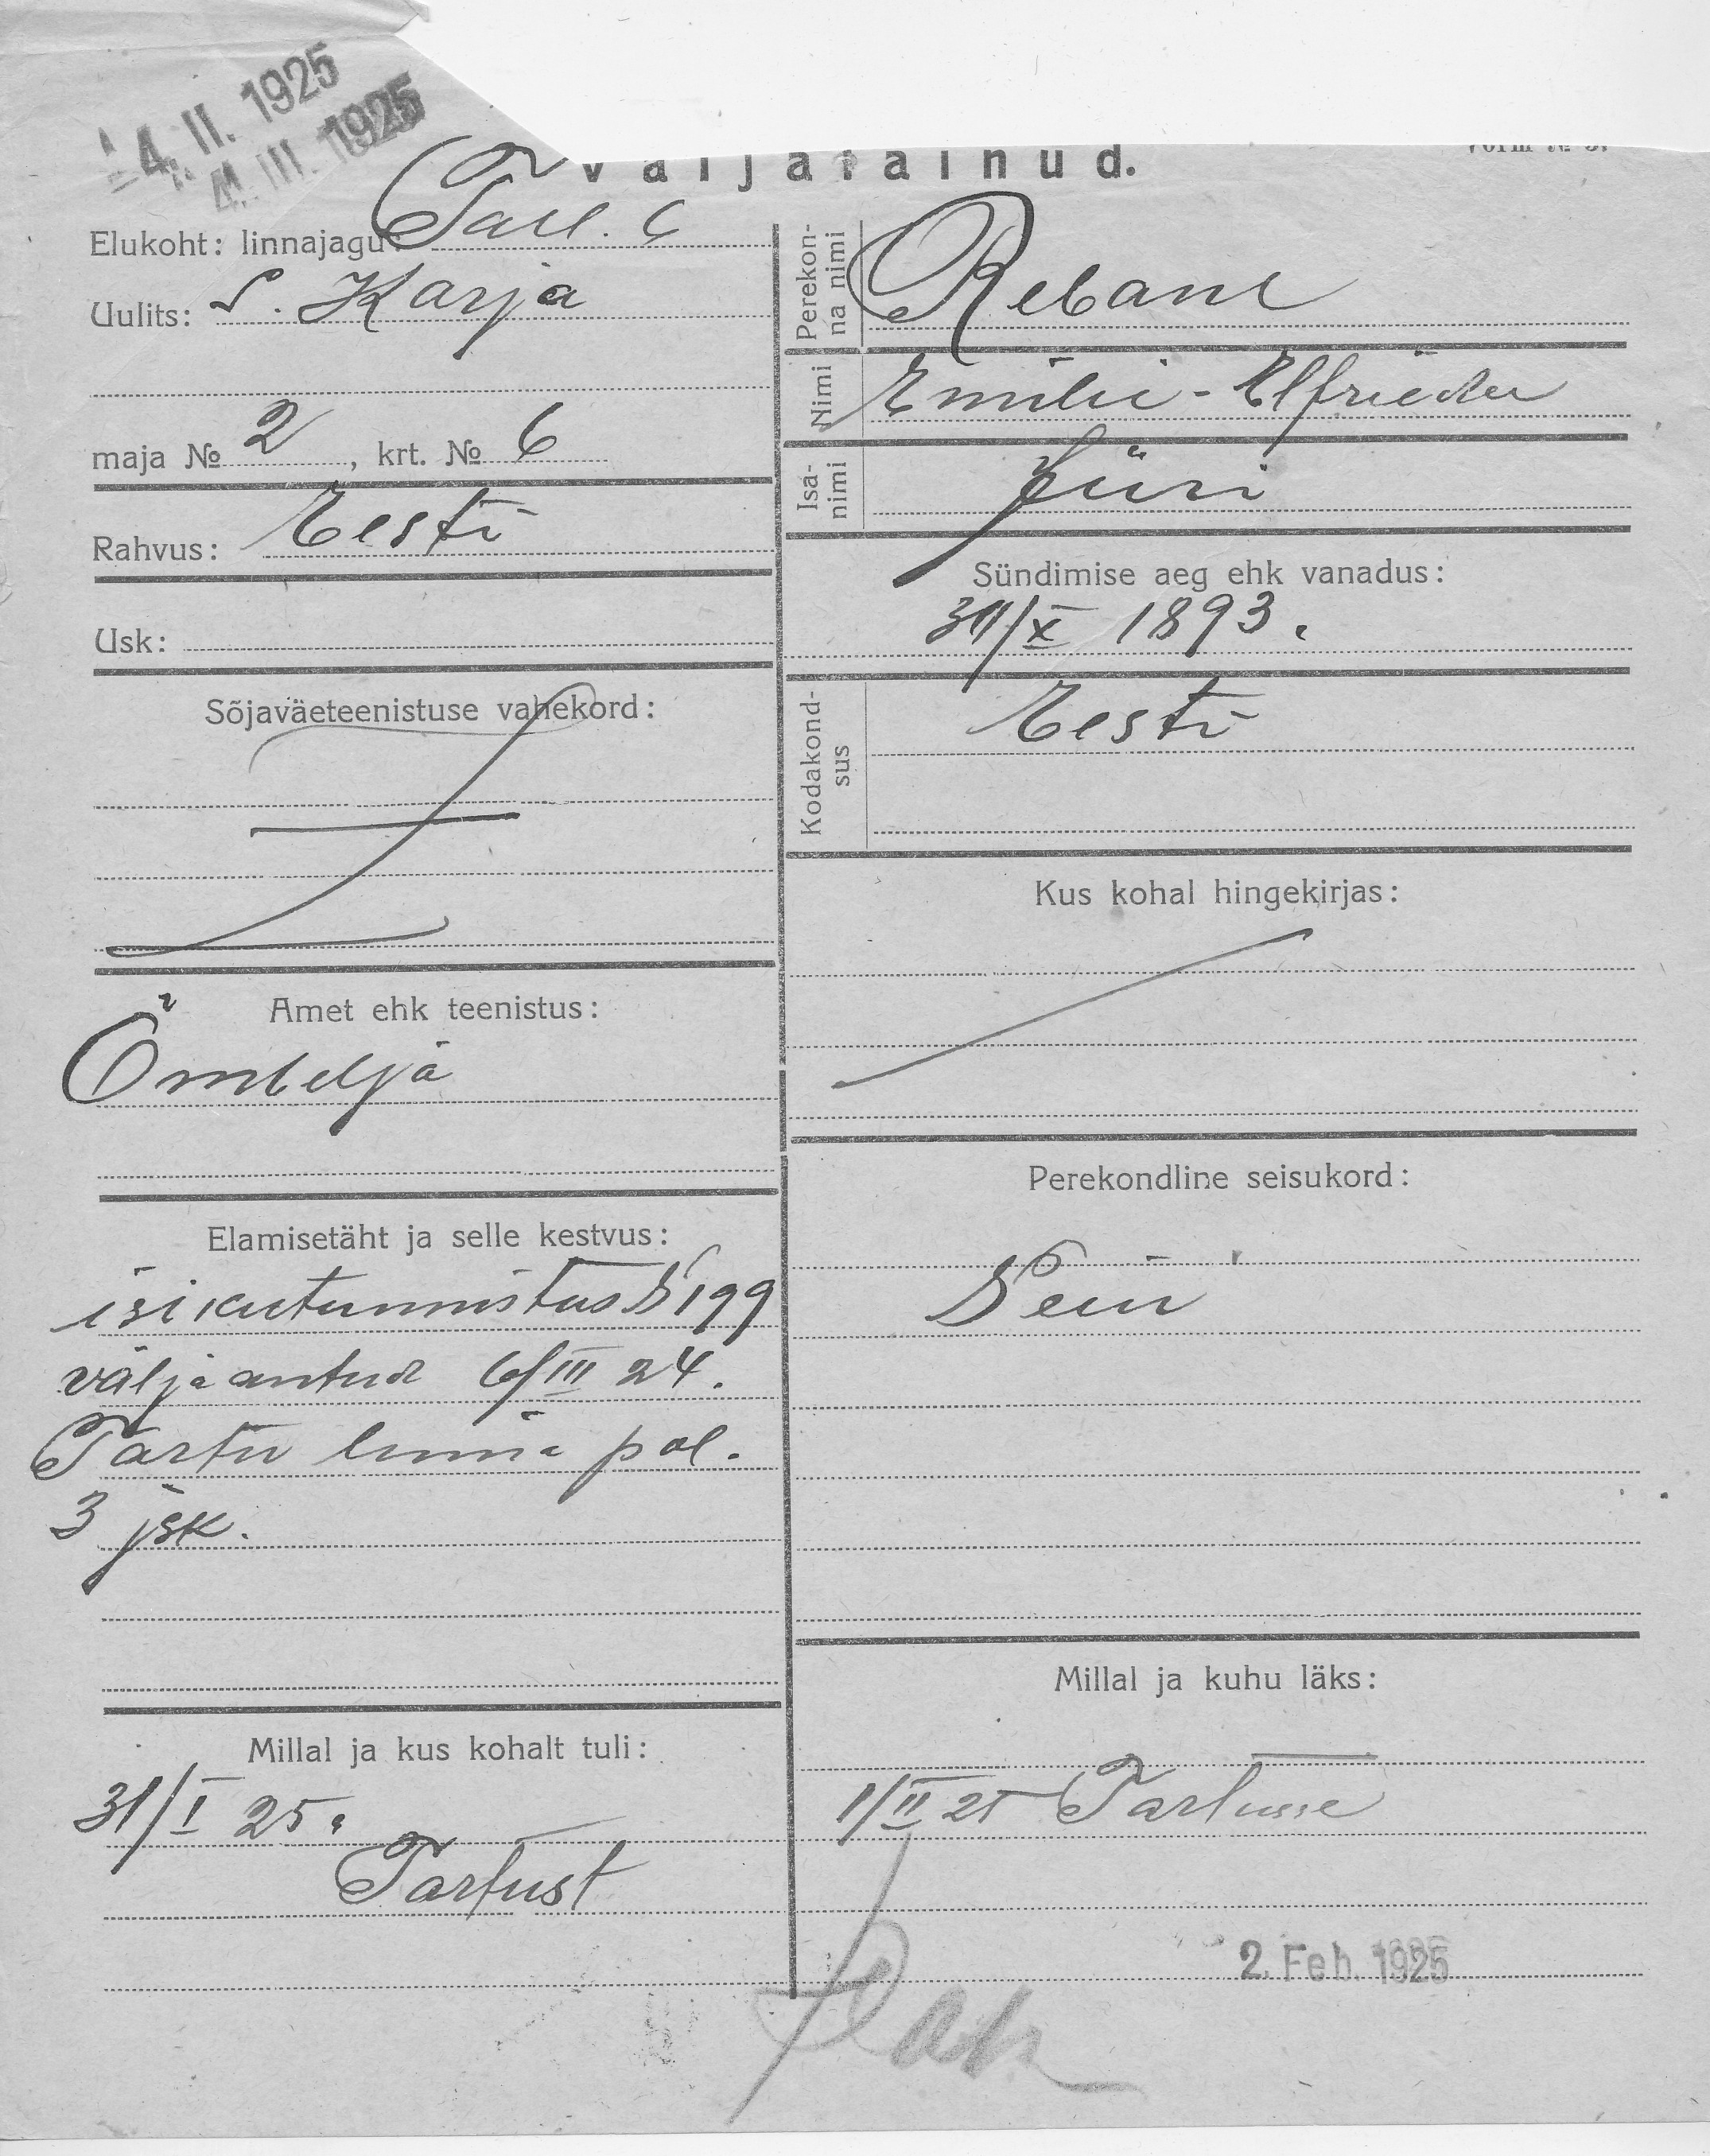 4. II. 1925
4. III. 1925
Väljaläinud.
Elukoht: linnajagu: Tall. 6
Uulits: S. Karja
maja № 2, krt. № 6
Rahvus: Eesti
Usk:
Sõjaväeteenistuse vahekord:
Amet ehk teenistus:
Õmbelja
Elamisetäht ja selle kestvus:
isikutunnistus № 199
välja antud 6/III 24.
Tartu linna pol.
3 jsk.
Millal ja kus kohalt tuli:
31/I 25.
Tartust
Perekonna nimi
Rebane
Nimi
Emilie-Elfriede
Isanimi
Jüri
Sündimise aeg ehk vanadus:
31/X 1893.
Kodakondsus
Eesti
Kus kohal hingekirjas:
Perekondline seisukord:
Millal ja kuhu läks:
1/II 25 Tartusse
2. Feb. 1925